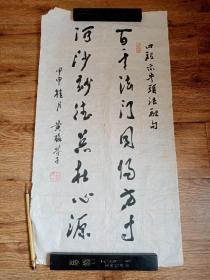 四祖示牛頭法融句
百千法门同歸方寸
河沙妙德總在心源
甲申桂月 黄